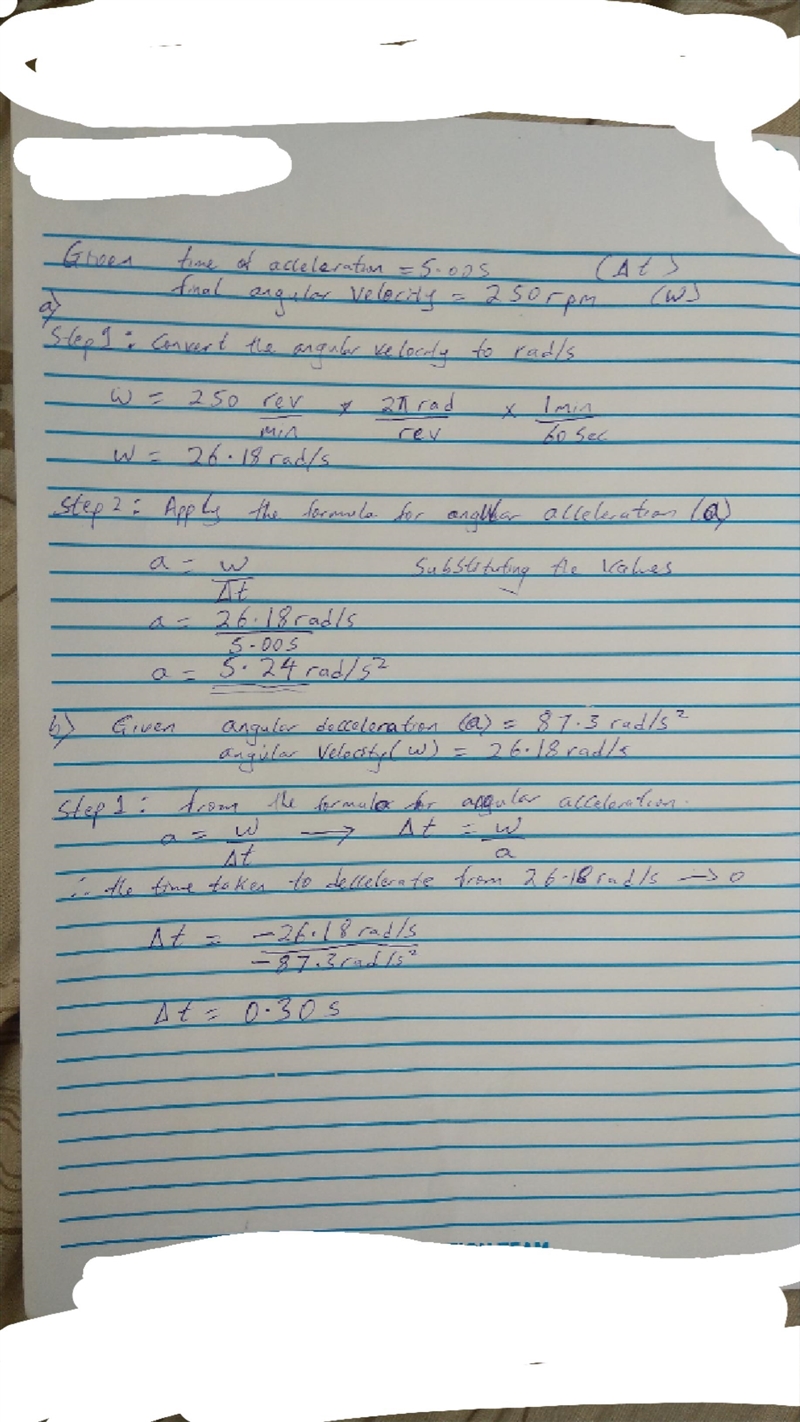 Given time of acceleration = 5.00s (Δt)
final angular velocity = 250rpm (w)
a)
Step 1: Convert the angular velocity to rad/s
w = 250 rev/min × 2π rad/rev × 1min/60 sec
w = 26.18 rad/s
Step 2: Apply the formula for angular acceleration (a)
a = w/Δt Substituting the values
a = 26.18 rad/s / 5.00s
a = 5.24 rad/s²
b) Given angular decceleration (a) = 87.3 rad/s²
angular velocity (w) = 26.18 rad/s
Step 1: from the formula for angular acceleration.
a = w/Δt → Δt = w/a
∴ the time taken to deccelerate from 26.18 rad/s → 0
Δt = -26.18 rad/s / -87.3 rad/s²
Δt = 0.30 s
TEAM